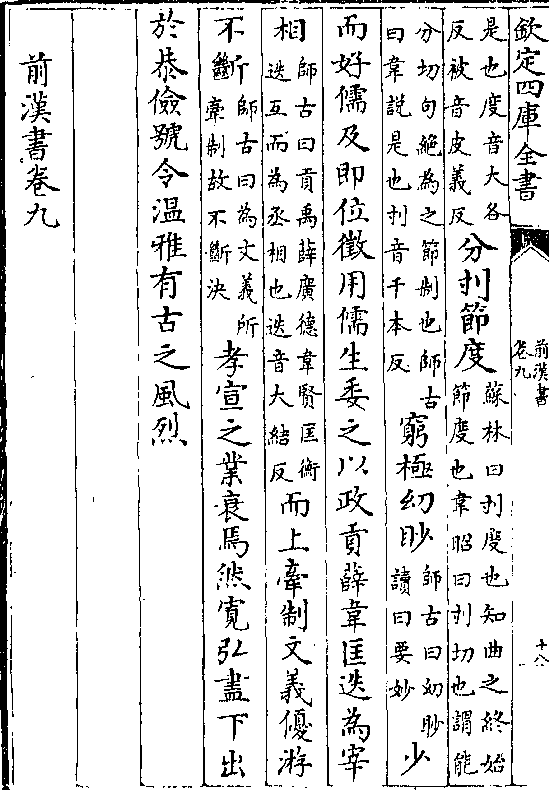 欽定四庫全書
前漢書
卷九
十八
是也度音大各
反被音皮義反
分刌節度
蘇林曰刌度也知曲之終始
節度也韋昭曰刌切也謂能
分切句絶為之節制也師古
曰韋説是也刌音千本反
窮極幼眇
師古曰幼眇
讀曰要妙
少
而好儒及即位徵用儒生委之以政貢薛韋匡迭為宰
相
師古曰貢禹薛廣德韋賢匡衡
迭互而為丞相也迭音大結反
而上牽制文義優游
不斷
師古曰為文義所
牽制故不斷決
孝宣之業衰焉然寛弘盡下出
於恭儉號令温雅有古之風烈
前漢書卷九